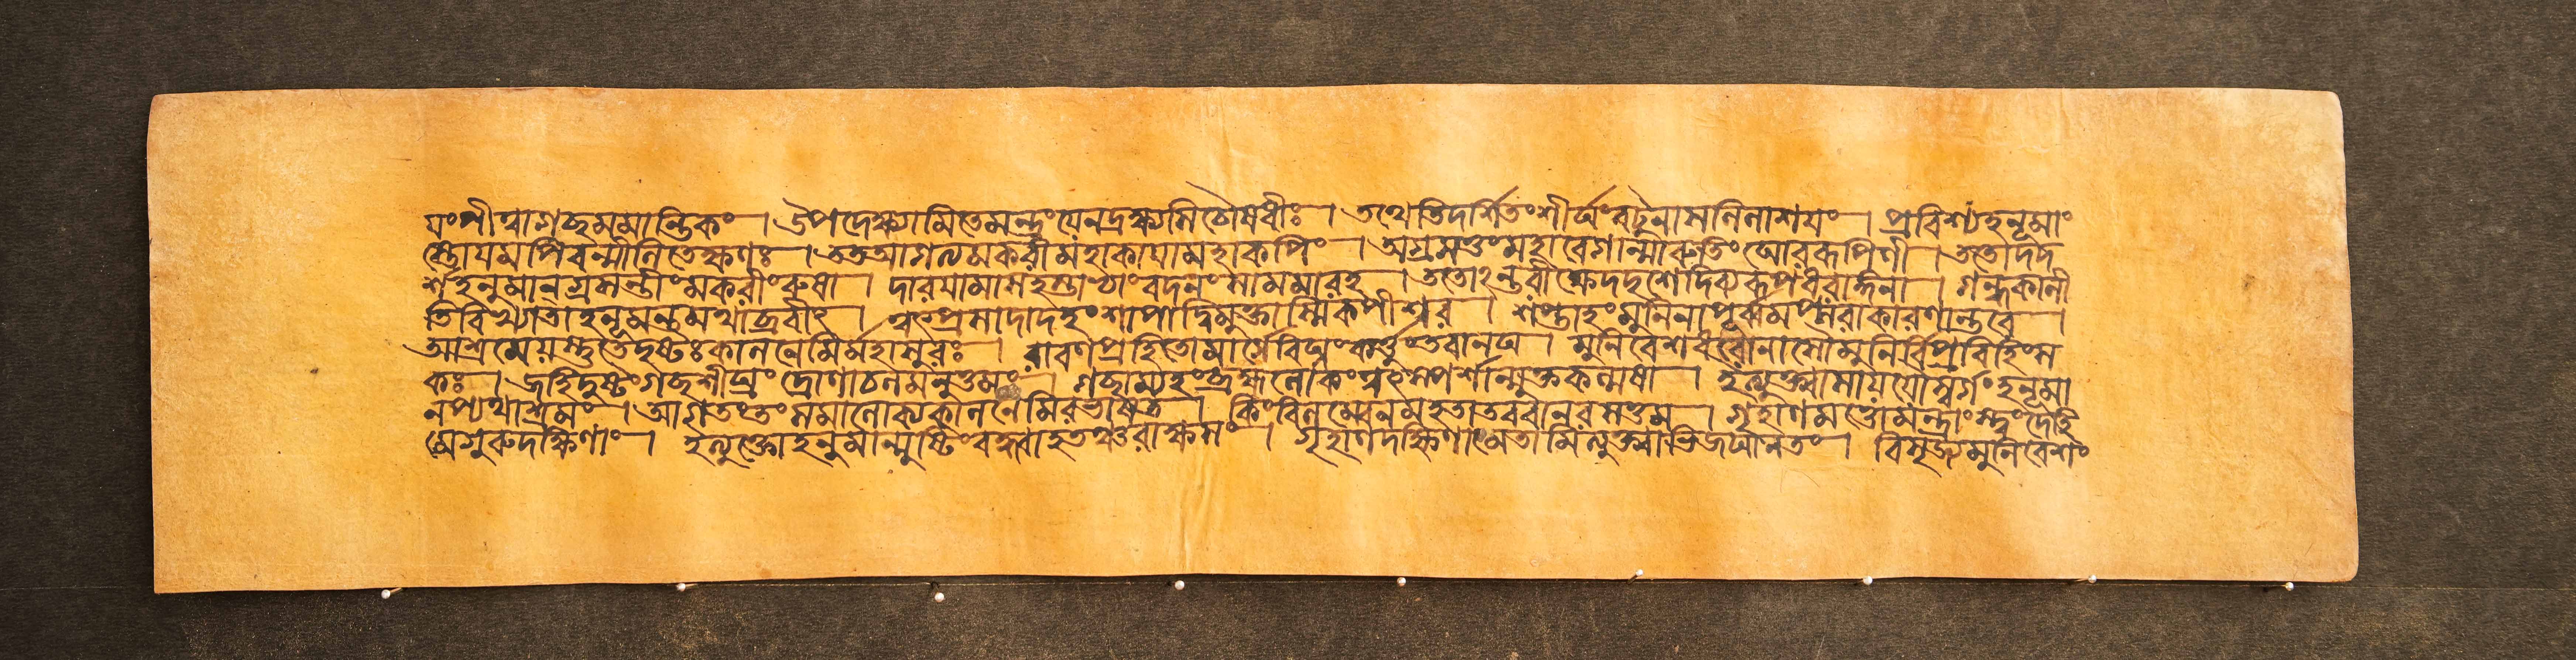 য়ংপীত্বাগচ্ছমমান্তিকং । উপদেক্ষ্যামিতেমন্ত্রংযেনদ্রক্ষ্যসিচৌষধীঃ । তথেতিদর্শিতংশীঘ্রংবটুনাসলিলাশয়ং । প্রবিশ্যহনূমাং
স্তোয়মপিবন্মীলিতেক্ষণঃ । ততআগত্যমকরীমহাকায়ামহাকপিং । অগ্রসত্তংমহাবেগান্মারুতিংঘোররূপিণী । ততোদদ
র্শহনুমানগ্রসন্তীংমকরীংরুষা । দারয়ামাসহস্তাভ্যাংবদনংসামমারহ । ততোঽন্তরীক্ষেদদৃশেদিব্যরূপধরাঙ্গনা । গন্ধকালী
তিবিখ্যাতাহনূমন্তমথাব্রবীৎ । ত্বৎপ্রসাদাদহংশাপাদ্বিমুক্তাস্মিকপীশ্বর । শপ্তাহংমুনিনাপূর্ব্বমপ্সরাকারণান্তরে ।
আশ্রমেয়স্তুতেদৃষ্টঃকালনেমির্মহাসুরঃ । রাবণপ্রহিতোমার্গেবিঘ্নংকর্ত্তুংতবানঘ । মুনিবেশধরোনাসৌমুনির্বিপ্রবিহিংস
কঃ । জহিদুষ্টংগচ্ছশীঘ্রংদ্রোণাচলমনুত্তমং । গচ্ছাম্যহংব্রহ্মলোকংত্বৎস্পর্শান্মুক্তকল্মষা । ইত্যুক্ত্বাসাযযৌস্বর্গংহনূমা
নপ্যথাশ্রমং । আগতংতংসমালোক্যকালনেমিরভাষত । কিংবিলম্বেনমহতাতববানরসত্তম । গৃহাণমত্তোমন্ত্রাংস্ত্বংদেহি
মেগুরুদক্ষিণাং । ইত্যুক্তোহনুমান্মুষ্টিংবদ্ধ্বাহতঞ্চরাক্ষসং । গৃহাণদক্ষিণামেতামিত্যুক্ত্বানিজঘানতং । বিসৃজ্যমুনিবেশং